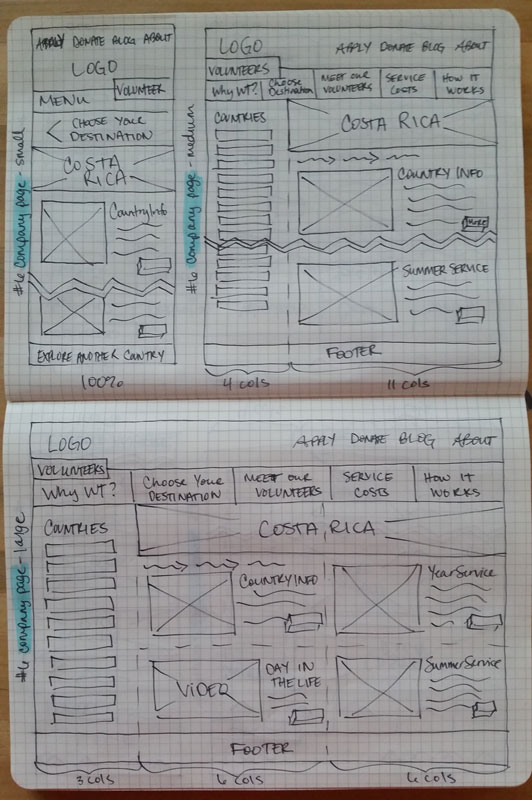 #6 company page - small
APPLY DONATE BLOG ABOUT
LOGO
VOLUNTEER
MENU
CHOOSE YOUR
DESTINATION
COSTA
RICA
Country Info
EXPLORE ANOTHER COUNTRY
100%
#6 company page - medium
LOGO
APPLY DONATE BLOG ABOUT
VOLUNTEERS
Why WT?
Choose
Destination
MEET OUR
VOLUNTEERS
SERVICE
COSTS
HOW IT
WORKS
COUNTRIES
COSTA RICA
COUNTRY INFO
MORE
SUMMER SERVICE
FOOTER
4 cols
11 cols
#6 company page - large
LOGO
APPLY DONATE BLOG ABOUT
VOLUNTEERS
Why WT?
Choose Your
DESTINATION
MEET OUR
VOLUNTEERS
SERVICE
COSTS
HOW IT
WORKS
COUNTRIES
COSTA RICA
COUNTRY INFO
Year Service
VIDEO
DAY IN
THE LIFE
Summer Service
FOOTER
3 cols
6 cols
6 cols